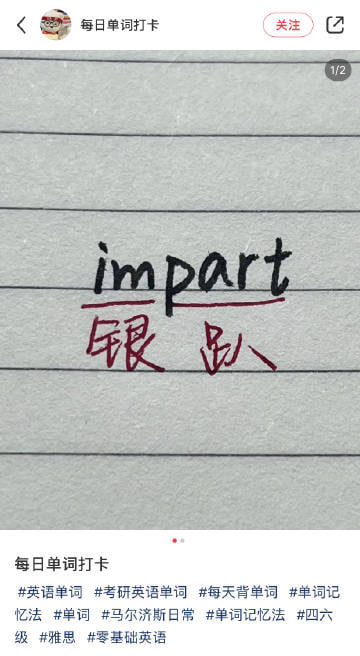 每日单词打卡
关注
1/2
impart
银 趴
每日单词打卡
#英语单词 #考研英语单词 #每天背单词 #单词记
忆法 #单词 #马尔济斯日常 #单词记忆法 #四六
级 #雅思 #零基础英语